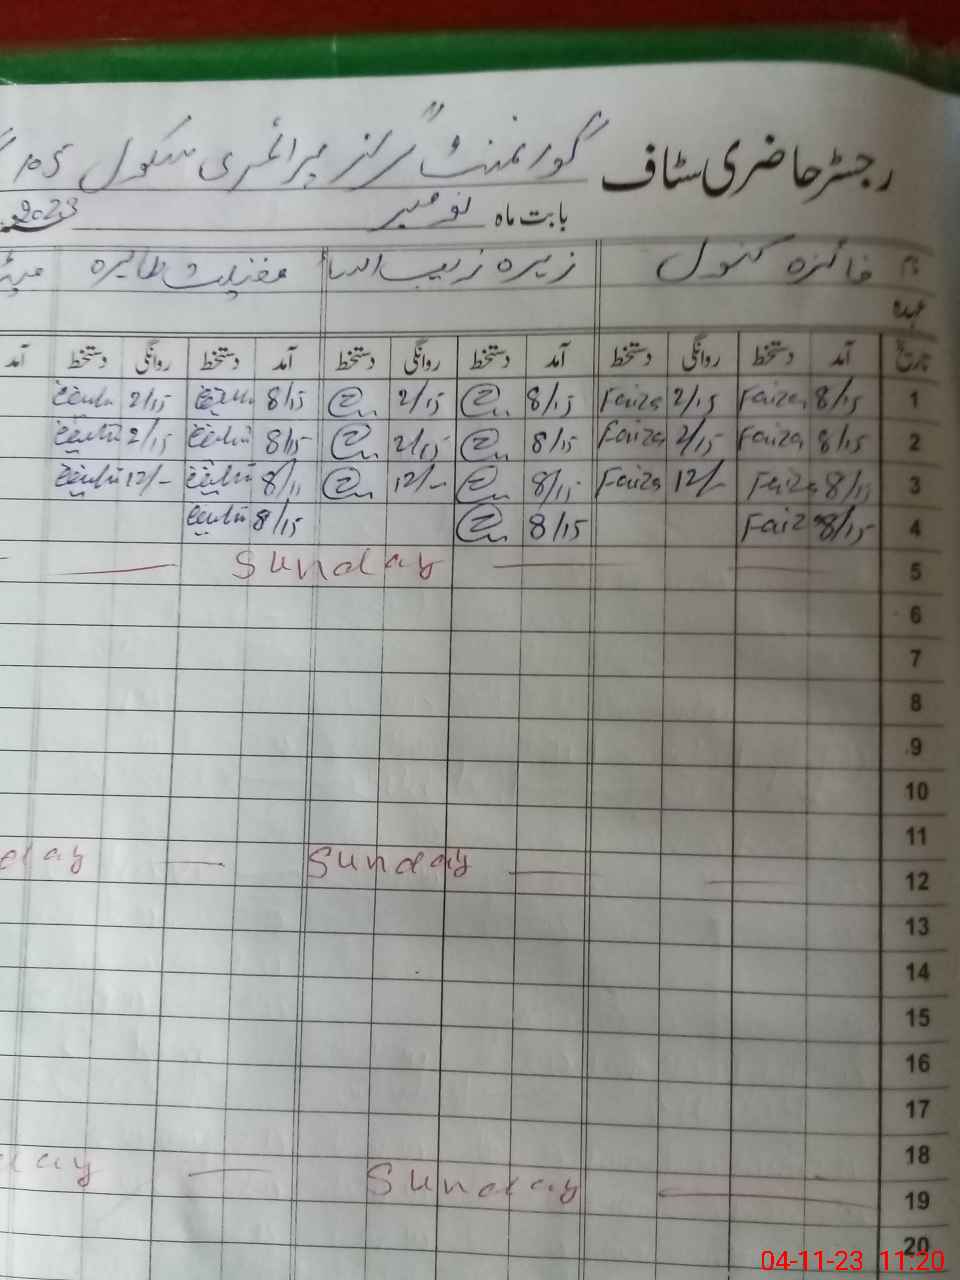 رجسٹر حاضری سٹاف گورنمنٹ گرلز پرائمری سکول 105
بابت ماہ نومبر 2023
نام فائزہ کنول زہرہ زیب النسا طاہرہ
عہدہ
تاریخ آمد دستخط روانگی دستخط آمد دستخط روانگی دستخط آمد دستخط روانگی دستخط آمد
1 8/15 Faiza 2/15 Faiza 8/15 2/15 8/15 2/15
2 8/15 Faiza 2/15 Faiza 8/15 2/15 8/15 2/15
3 8/15 Faiza 12/- Faiza 8/15 12/- 8/15 12/-
4 8/15 Faiza 8/15 8/15
5 Sunday
6
7
8
9
10
11
12 Sunday day
13
14
15
16
17
18
19 Sunday day
20
04-11-23 11:20